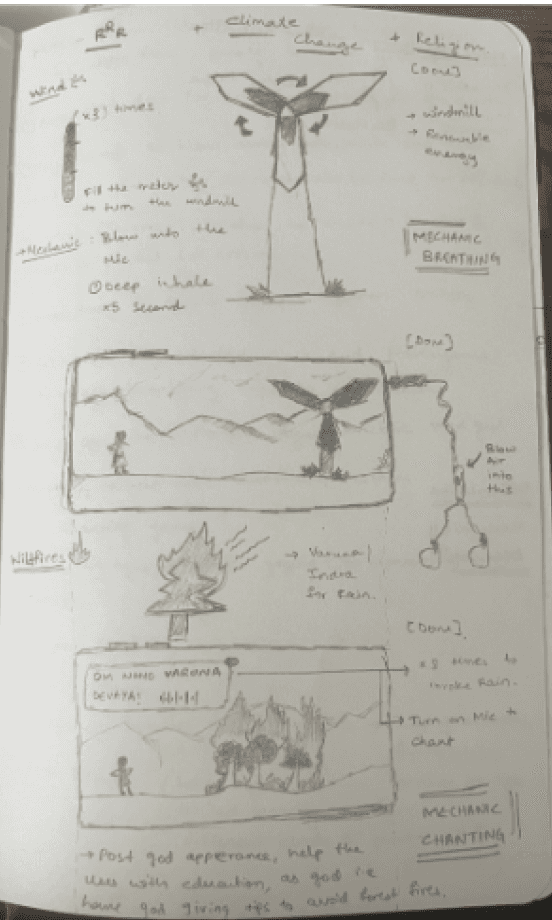 RRR + Climate Change + Religion
[DOM]
Wind
x3) times
→ windmill
→ Renewable energy
Fill the meter
to turn the windmill
→ Mechanic: Blow into the
Mic
① Deep inhale
x5 second
MECHANIC
BREATHING
[DOM]
Blow
Air
into
this
Wildfires
→ Varuna/
Indra
for Rain.
[DOM]
OM NAMO VARUNA
DEVAYA!
→ x3 times to
invoke Rain.
→ Turn on Mic to
chant
MECHANIC
CHANTING
→ Post god apperance, help the
user with education, as god i.e
have god giving tips to avoid forest fires.